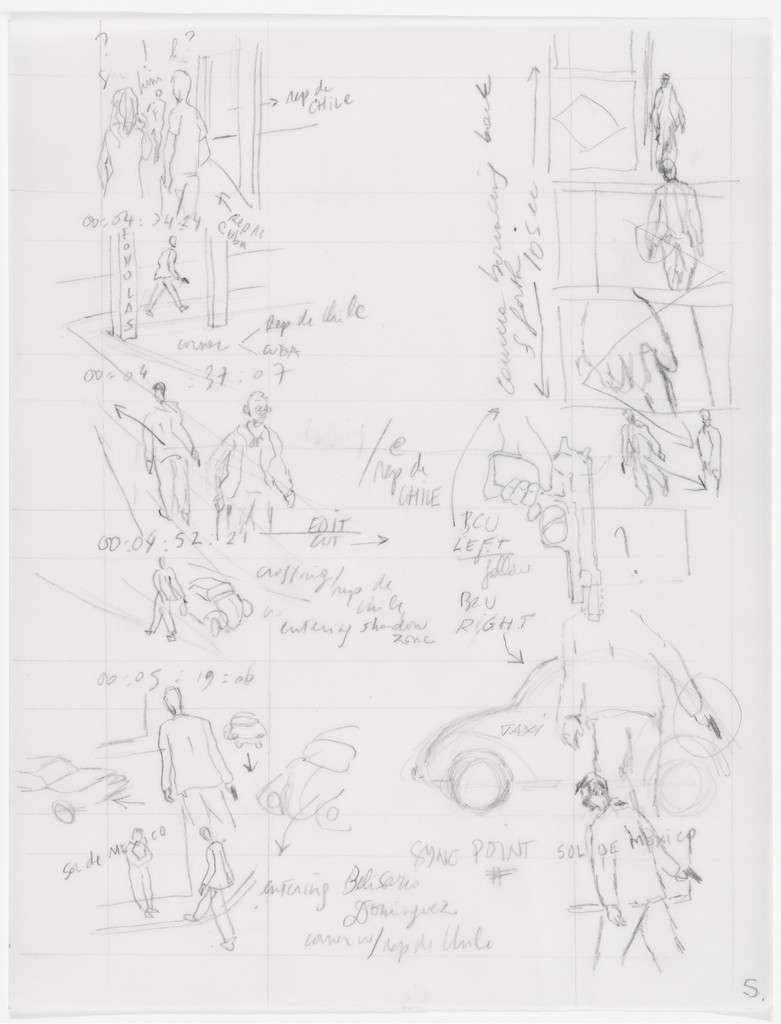 ? ! h?
him
→ rep de
CHILE
00:04:34:24
REP de
CUBA
FONOLAS
corner < Rep de Chile
CUBA
00:04:37:07
@
rep de
CHILE
00:04:52:21
EDIT
CUT →
crossing/
rep de
Chile
entering shadow
zone
00:05:19:06
SOL de MEXICO
entering Belisario
Dominguez
corner w/ rep de Chile
back
& forth
10 sec
BCU
LEFT
follow
BCU
RIGHT
?
TAXI
SYNC POINT
#
SOL DE MEXICO
5.